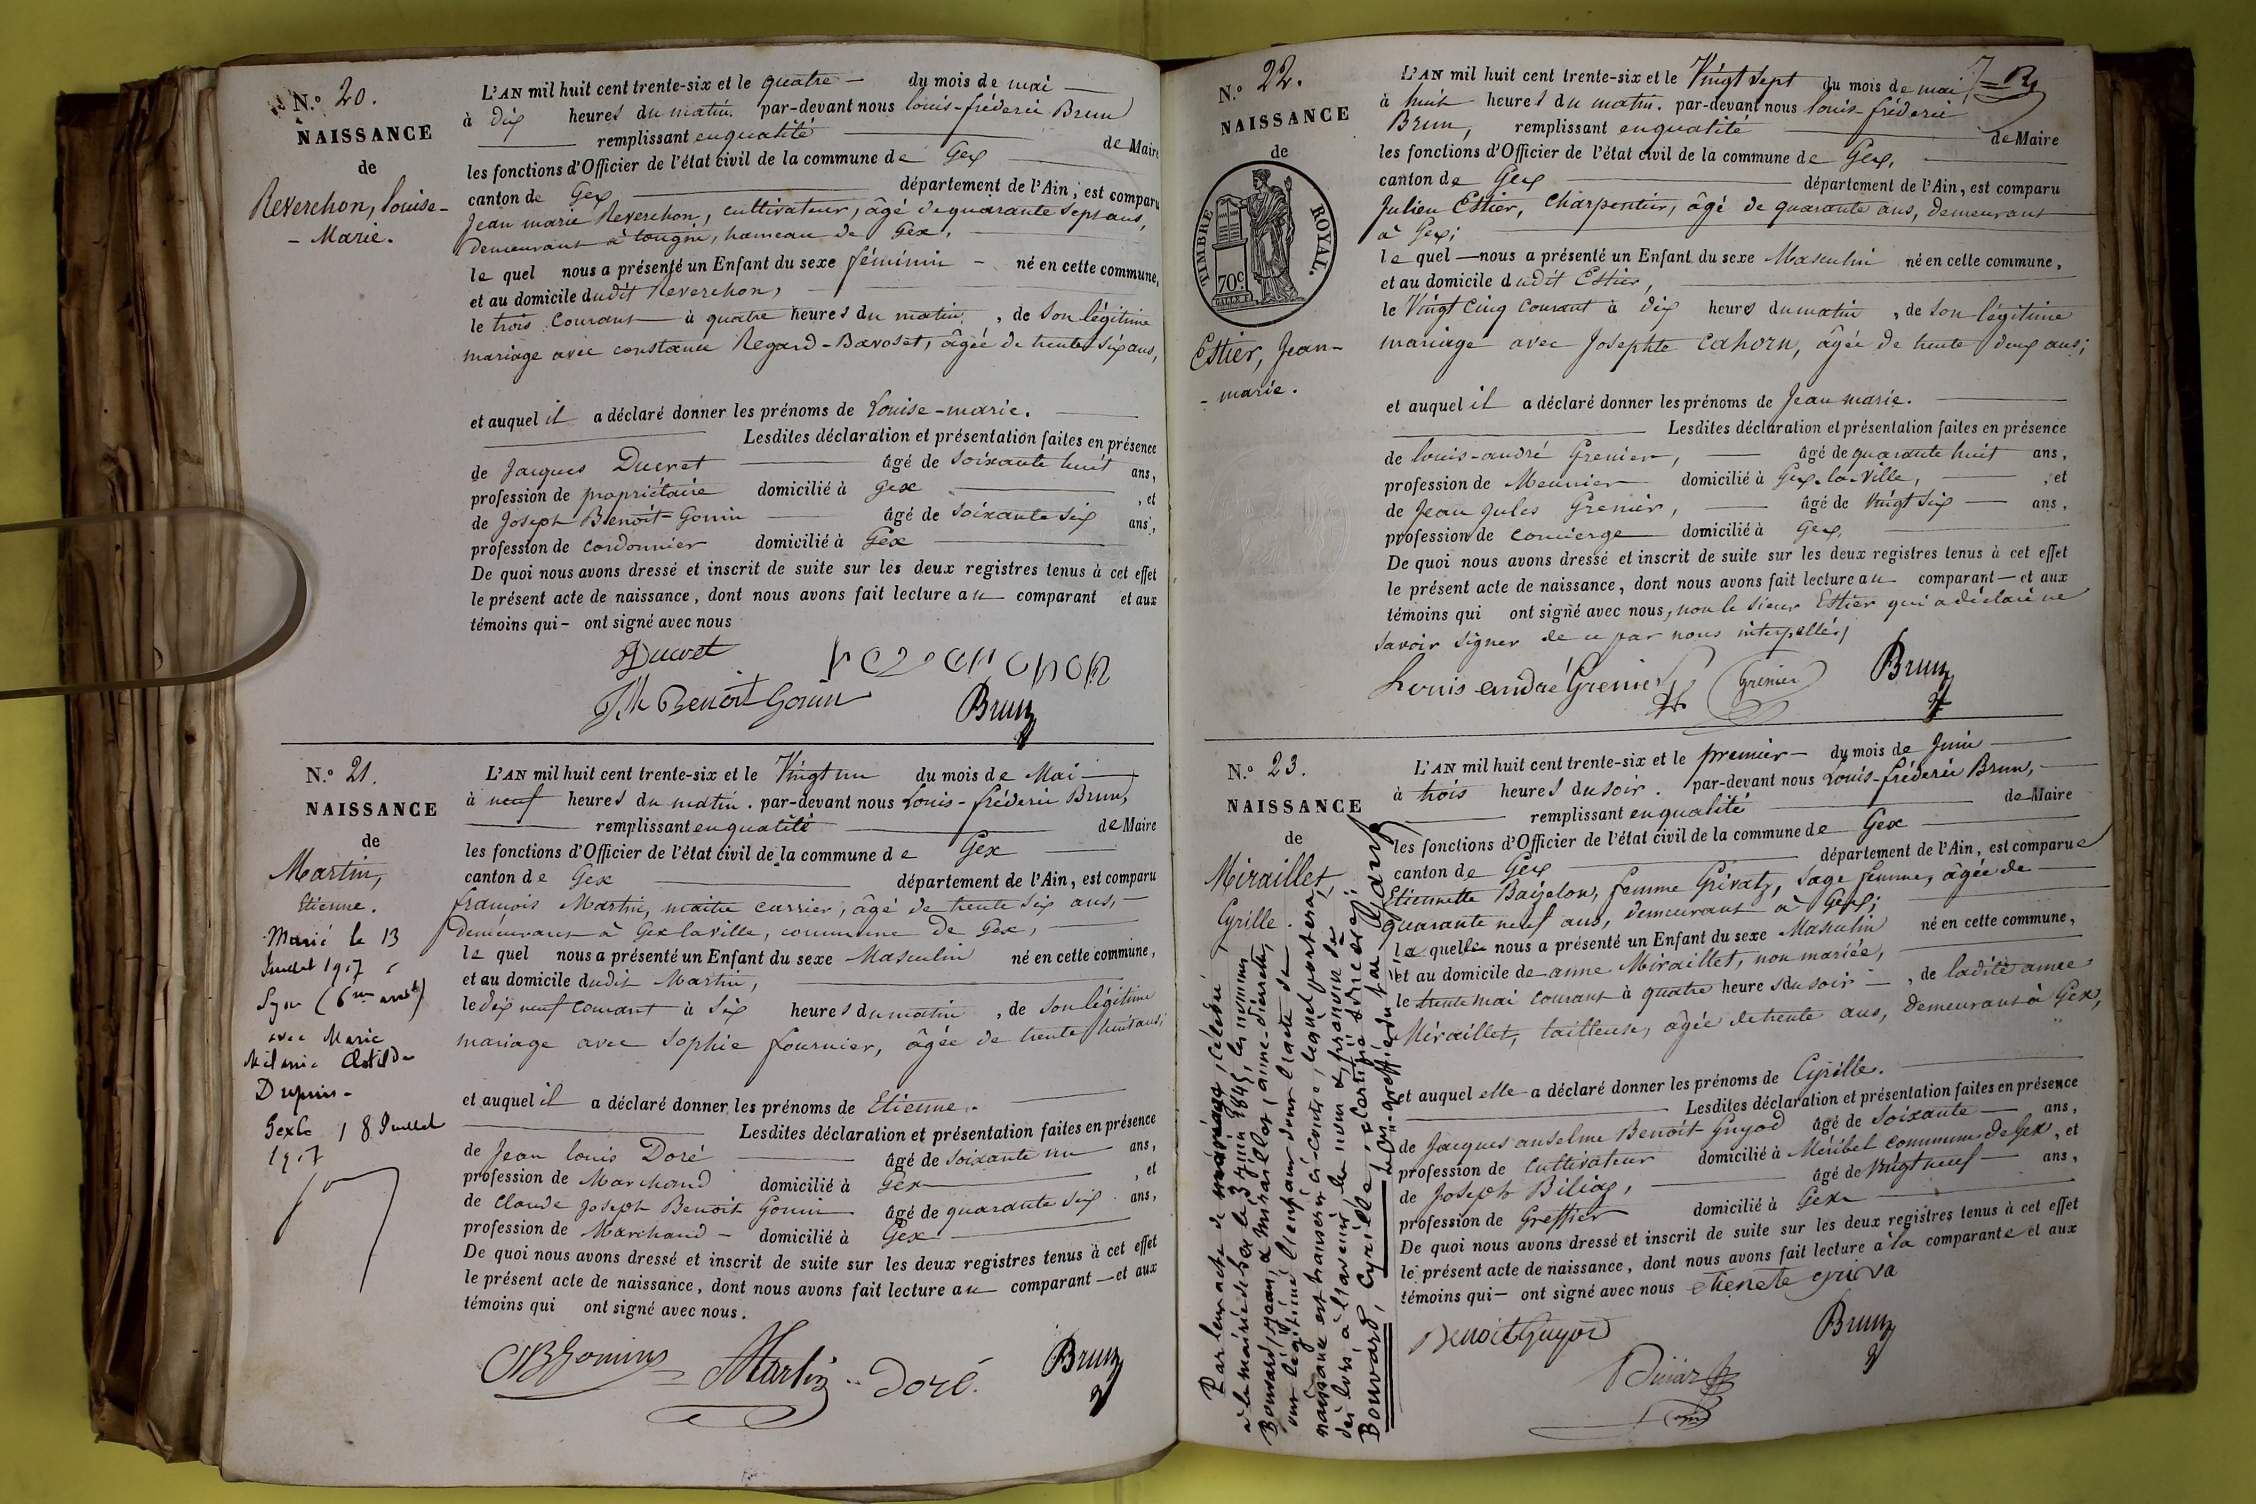 N.° 20.
NAISSANCE
de
Reverchon, louise-
- Marie.
L'AN mil huit cent trente-six et le quatre — du mois de mai —
à dix heures du matin. par-devant nous louis-fréderic Brun
remplissant en qualité de Maire
les fonctions d'Officier de l'état civil de la commune de Gex
canton de Gex département de l'Ain, est comparu
Jean marie Reverchon, cultivateur, âgé de quarante sept ans,
demeurant à tougin, hameau de Gex,
le quel nous a présenté un Enfant du sexe féminin - né en cette commune,
et au domicile dudit Reverchon,
le trois courant à quatre heures du matin, de son légitime
mariage avec constance Regard-Bavoset, âgée de trente six ans,
et auquel il a déclaré donner les prénoms de Louise-marie.
Lesdites déclaration et présentation faites en présence
de Jacques Ducret âgé de soixante huit ans,
profession de propriétaire domicilié à Gex , et
de Joseph Benoit-Gonin âgé de soixante six ans,
profession de cordonnier domicilié à Gex
De quoi nous avons dressé et inscrit de suite sur les deux registres tenus à cet effet
le présent acte de naissance, dont nous avons fait lecture au comparant et aux
témoins qui - ont signé avec nous
Ducret reverchon
Jh Benoit Gonin Brun
N.° 21.
NAISSANCE
de
Martin,
Etienne.
Marié le 13
Juillet 1917 à
Lyon (6me arrdt)
avec Marie
Mélanie Clotilde
Dupuis-
Gex le 18 Juillet
1917
L'AN mil huit cent trente-six et le Vingt un du mois de Mai
à neuf heures du matin. par-devant nous Louis-fréderic Brun,
remplissant en qualité de Maire
les fonctions d'Officier de l'état civil de la commune de Gex
canton de Gex département de l'Ain, est comparu
françois Martin, maitre carrier, âgé de trente six ans,
demeurant à Gex la ville, commune de Gex,
le quel nous a présenté un Enfant du sexe Masculin né en cette commune,
et au domicile dudit Martin,
le dix neuf courant à six heures du matin, de son légitime
mariage avec Sophie fournier, âgée de trente huit ans;
et auquel il a déclaré donner les prénoms de Etienne.
Lesdites déclaration et présentation faites en présence
de Jean louis Doré âgé de soixante un ans,
profession de Marchand domicilié à Gex , et
de Claude Joseph Benoit Gonin âgé de quarante six ans,
profession de Marchand - domicilié à Gex
De quoi nous avons dressé et inscrit de suite sur les deux registres tenus à cet effet
le présent acte de naissance, dont nous avons fait lecture au comparant — et aux
témoins qui ont signé avec nous.
Martin Doré. Brun
N.° 22.
NAISSANCE
de
TIMBRE ROYAL.
70c
Estier, Jean-
- marie.
L'AN mil huit cent trente-six et le Vingt sept du mois de mai,
à huit heures du matin. par-devant nous louis-fréderic
Brun, remplissant en qualité de Maire
les fonctions d'Officier de l'état civil de la commune de Gex,
canton de Gex département de l'Ain, est comparu
Julien Estier, charpentier, âgé de quarante ans, demeurant
à Gex;
le quel — nous a présenté un Enfant du sexe Masculin né en cette commune,
et au domicile dudit Estier,
le Vingt cinq courant à dix heures du matin, de son légitime
mariage avec Josephte Cahorn, âgée de trente deux ans;
et auquel il a déclaré donner les prénoms de Jean marie.
Lesdites déclaration et présentation faites en présence
de louis-andré Grenier, âgé de quarante huit ans,
profession de Meunier domicilié à Gex-la-Ville, , et
de Jean Jules Grenier, âgé de Vingt six ans,
profession de concierge domicilié à Gex,
De quoi nous avons dressé et inscrit de suite sur les deux registres tenus à cet effet
le présent acte de naissance, dont nous avons fait lecture au comparant — et aux
témoins qui ont signé avec nous, non le sieur Estier qui a déclaré ne
savoir signer de ce par nous interpellé,
Louis andré Grenier Grenier Brun
N.° 23.
NAISSANCE
de
Miraillet,
Cyrille.
Par leur acte de mariage, célébré
à la mairie de Gex le 3 juin 1845, les nommés
Bouvard, Jean, & Miraillet, anne-pierrette,
ont légitimé l'enfant dont l'acte de
naissance est transcrit ci-contre, lequel portera,
dès lors, à l'avenir, les nom & prénom de
Bouvard, Cyrille;
L'AN mil huit cent trente-six et le premier — du mois de Juin
à trois heures du soir. par-devant nous Louis-fréderic Brun,
remplissant en qualité de Maire
les fonctions d'Officier de l'état civil de la commune de Gex
canton de Gex département de l'Ain, est comparue
Etiennette Baizelon, femme Grivatz, Sage femme, âgée de
quarante neuf ans, demeurant à Gex;
la quelle nous a présenté un Enfant du sexe Masculin né en cette commune,
et au domicile de anne Miraillet, non mariée,
le trente mai courant à quatre heures du soir — , de ladite anne
Miraillet, tailleuse, âgée de trente ans, demeurant à Gex,
et auquel elle a déclaré donner les prénoms de Cyrille.
Lesdites déclaration et présentation faites en présence
de Jacques anselme Benoit Guyod âgé de soixante ans,
profession de cultivateur domicilié à Méribel commune de Gex, et
de Joseph Biliaz, âgé de Vingt neuf ans,
profession de Greffier domicilié à Gex
De quoi nous avons dressé et inscrit de suite sur les deux registres tenus à cet effet
le présent acte de naissance, dont nous avons fait lecture à la comparante et aux
témoins qui — ont signé avec nous
Benoit Guyod Brun